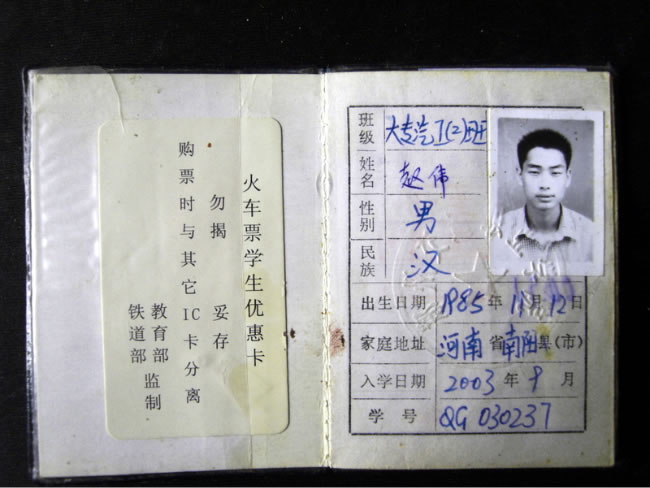 火车票学生优惠卡
勿揭 妥存
购票时与其它IC卡分离
教育部
铁道部
监制
班级 大专汽工(2)班
姓名 赵伟
性别 男
民族 汉
出生日期 1985年11月12日
家庭地址 河南省南阳县(市)
入学日期 2003年9月
学号 QG 030237